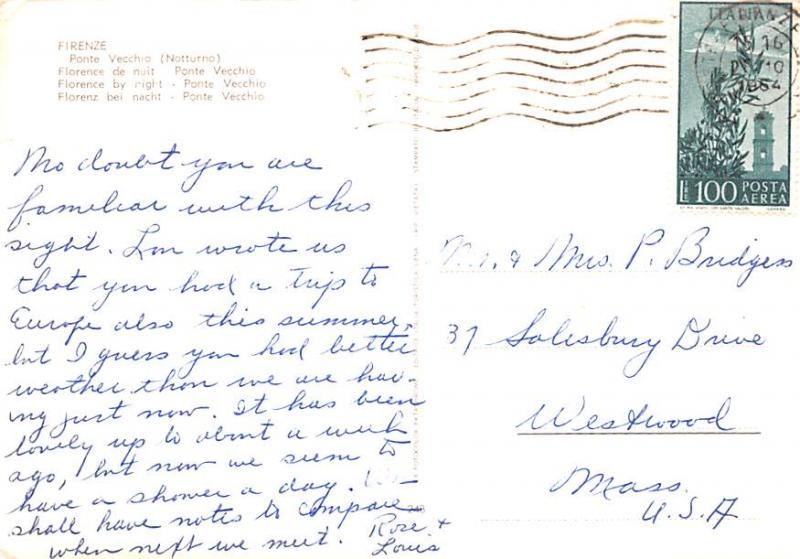 FIRENZE
Ponte Vecchio (Notturno)
Florence de nuit Ponte Vecchio
Florence by night - Ponte Vecchio
Florenz bei nacht - Ponte Vecchio
No doubt you are
familiar with this
sight. Lon wrote us
that you had a trip to
Europe also this summer,
but I guess you had better
weather than we are hav-
ing just now. It has been
lovely up to about a week
ago, but now we seem to
have a shower a day. We
shall have notes to compare
when next we meet. Rose &
Louis
ITALIANE
16
L. 100 POSTA
AEREA
Mr. & Mrs. P. Bridgess
37 Salesbury Drive
Westwood
Mass.
U.S.A